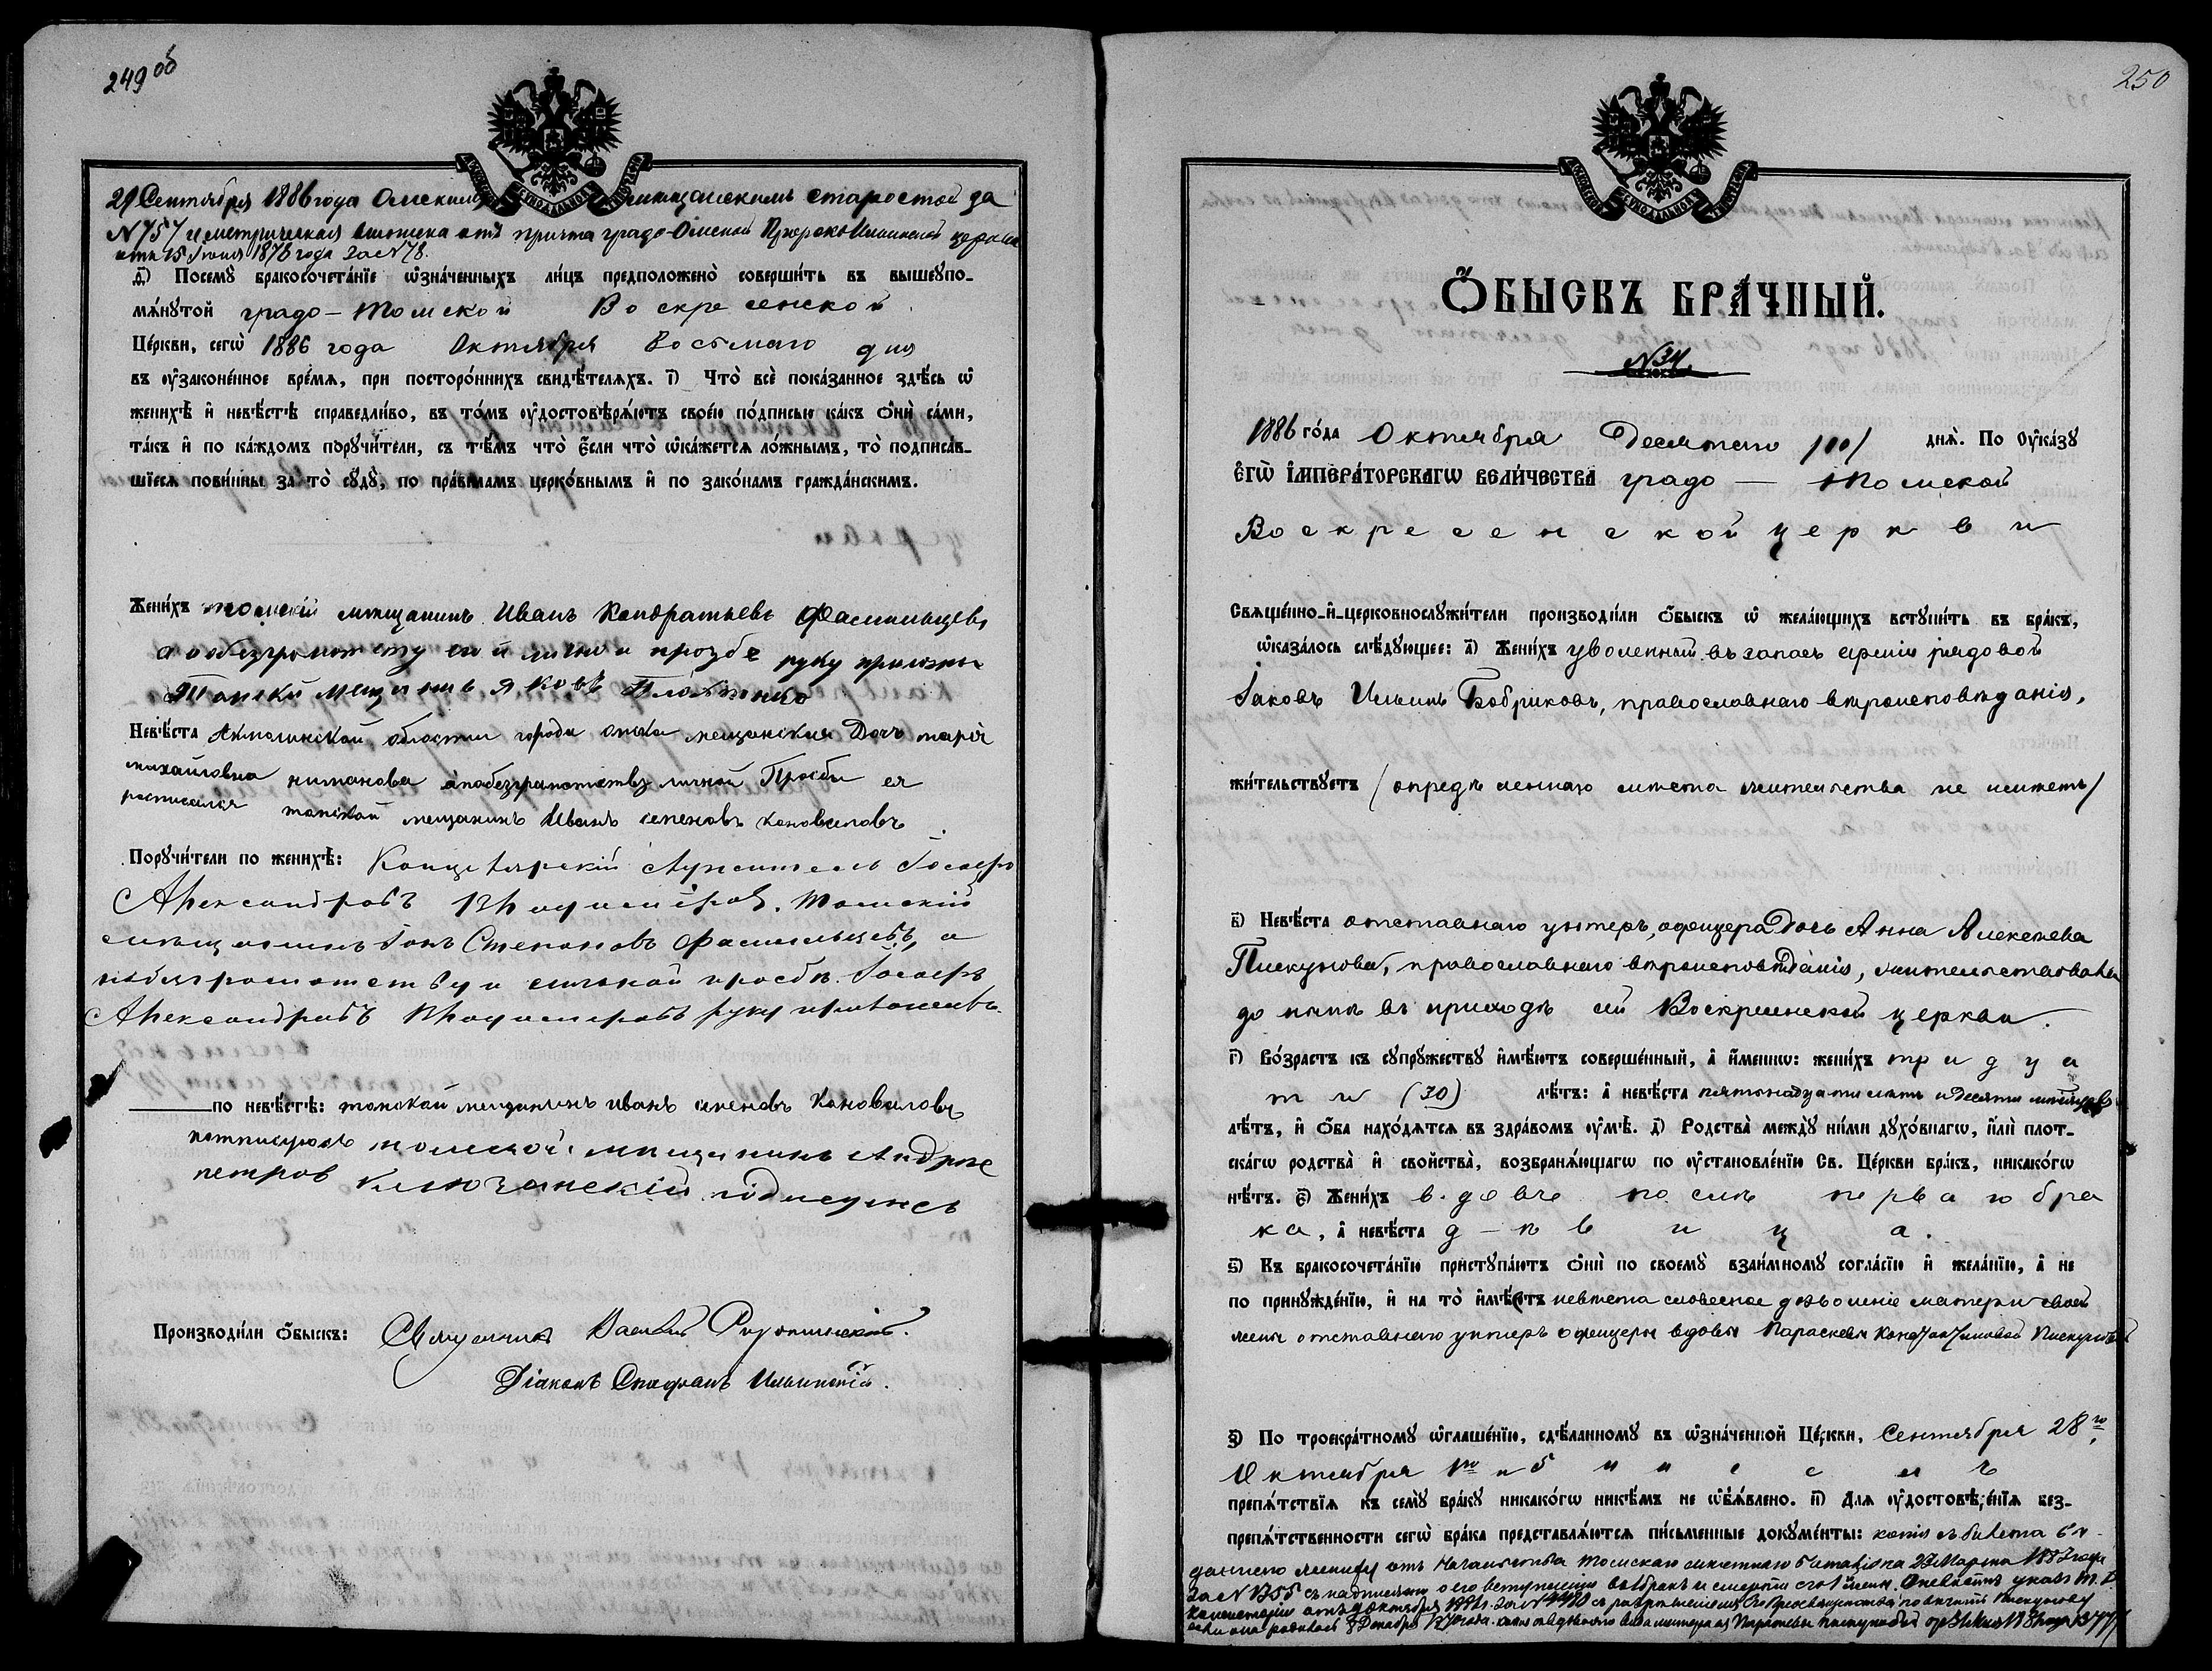 249 об
29 Сентября 1886 года Омским мещанскимъ старостой за
№ 757 и метрическая выписка отъ причта градо-Омской Пророко Ильинской церкви
отъ 15 Іюня 1878 года за № 78.
д҃) Посему̀ бракосочета́нїе ѡ҆зна́ченныхъ ли́цъ предположено̀ соверши́ть въ вышеꙋпо-
мѧ́нꙋтой градо-Томской Воскресенской
Це́ркви, сегѡ̀ 1886 года Октября Восьмаго дня
въ ᲂу҆законе́нное вре́мѧ, при посторо́ннихъ свидѣ́телѧхъ. і҃) Что̀ всѐ пока́занное здѣ́сь ѡ҆
женихѣ̀ и҆ невѣ́стѣ справедли́во, въ то́мъ ᲂу҆достовѣрѧ́ютъ свое́ю по́дписью ка́къ ѻ҆нѝ са́ми,
та́къ и҆ по ка́ждомъ порꙋчи́тели, съ тѣ́мъ что̀ є҆́сли что̀ ѡ҆ка́жетсѧ ло́жнымъ, то̀ подписа́в-
шїесѧ пови́нны за то̀ сꙋдꙋ̀, по пра́виламъ церко́внымъ и҆ по зако́намъ гражда́нскимъ.
Жени́хъ томскій мещанинъ Иванъ Кондратьевъ Фасмильцевъ,
а по безграмотству его и личной прозбе руку приложилъ
Томскій мещанинъ Яковъ
Невѣ́ста Акмолинской области города омска мещанская Дочь марія
михайловна а по безграмотству личной Прозбы ея
росписался томской мещанинъ Иванъ семеновъ Коноваловъ
Порꙋчи́тели по женихѣ̀: Канцелярскій Служитель Іосифъ
Александровъ Владиміровъ. Томскій
мещанинъ Іонъ Степановъ Фасмильцевъ, а
по безграмотству и личной просбѣ Іосифъ
Александровъ Владиміровъ руку приложилъ.
по невѣ́стѣ: томской мещанинъ иванъ семеновъ Коноваловъ
потписуюсь томской мещанинъ Андрей
петров Ключанскій подписуюсь
Производи́ли ѻ҆́быскъ: Священникъ Василій
Діаконъ Стефанъ Ильинскій.
250
Ѻ҆́БЫСКЪ БРА́ЧНЫЙ.
№ 34.
1886 го́да Октября Десятаго /10/ днѧ̀. По Оу҆ка́зꙋ
Є҆гѡ̀ І҆мпера́торскагѡ Вели́чества градо-Томской
Воскресенской церкви
Свѧще́нно-и҆-церковнослꙋжи́тели производи́ли ѻ҆́быскъ ѡ҆ жела́ющихъ встꙋпи́ть въ бра́къ,
ѡ҆каза́лось слѣ́дꙋющее: а҃) Жени́хъ уволенный въ запасъ арміи рядовой
Іаковъ Ильинъ Бобриковъ, православнаго вѣроисповѣданія,
жи́тельствꙋетъ /опредѣленнаго мѣста жительства не имѣетъ/
в҃) Невѣ́ста отставнаго унтеръ-офицера Дочь Анна Алексѣева
Пискунова, православнаго вѣроисповѣданія, жительствовала
до нынѣ въ приходѣ сей Воскресенской церкви.
г҃) Во́зрастъ къ сꙋпрꙋ́жествꙋ и҆мѣ́ютъ соверше́нный, а҆ и҆́меннѡ: жени́хъ тридца
ти (30) лѣ́тъ: а҆ невѣ́ста пятнадцати лѣтъ и десяти мѣсяцевъ
лѣ́тъ, и҆ ѻ҆́ба нахо́дѧтсѧ въ здра́вомъ ᲂу҆мѣ̀. д҃) Родства̀ междꙋ ни́ми дꙋхо́внагѡ, и҆лѝ плот-
ска́гѡ родства̀ и҆ свойства̀, возбранѧ́ющагѡ по ᲂу҆становле́нїю Св. Це́ркви бра́къ, никако́гѡ
нѣ́тъ. є҃) Жени́хъ вдовъ послѣ перваго бра
ка, а҆ невѣ́ста дѣвица.
ѕ҃) Къ бракосочета́нїю пристꙋпа́ютъ ѻ҆нѝ по своемꙋ̀ взаи́мномꙋ согла́сїю и҆ жела́нїю, а҆ не
по принꙋжде́нїю, и҆ на то̀ и҆мѣ́етъ невѣста словесное дозволеніе матери своей
жены отставнаго унтеръ офицера вдовы Параскевы Пискуновой
з҃) По троекра́тномꙋ ѡ҆глаше́нїю, сдѣ́ланномꙋ въ ѡ҆зна́ченной Це́ркви, Сентября 28го,
Октября 1го и 5 числъ
препѧ́тствїѧ къ семꙋ̀ бра́кꙋ никако́гѡ никѣ́мъ не ѡ҆б̾ѧ́влено. и҃) Длѧ ᲂу҆достовѣ́ренїѧ без-
препѧ́тственности сегѡ̀ бра́ка представлѧ́ютсѧ пи́сьменные докꙋме́нты: копія съ билета вы-
даннаго жениху отъ Начальника Томскаго мѣстнаго баталіона 27 Марта 188 года
за № 1355 съ надписями о его вступленіи въ бракъ и смерти его жены. указъ Т. Д.
Консисторіи отъ Октября 1886 г. за № съ разрѣшеніемъ Его Преосвященства Пискунову
она родилась 8 Декабря 1870 года.